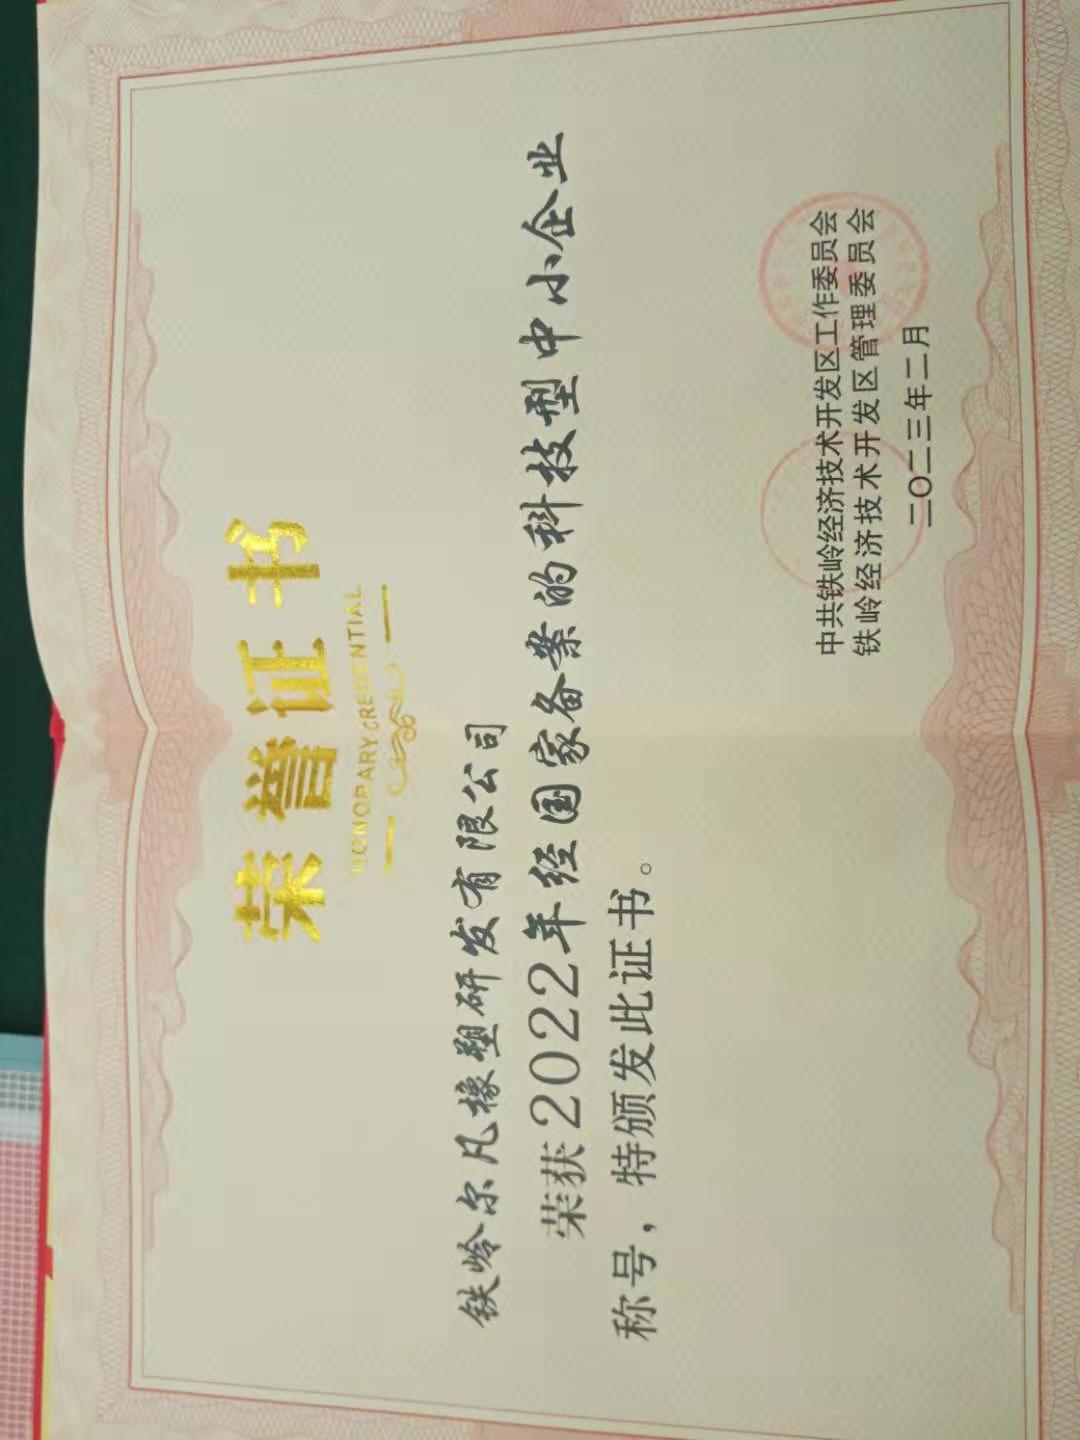 荣誉证书
HONORARY CREDENTIAL
铁岭尔凡橡塑研发有限公司
荣获2022年经国家备案的科技型中小企业
称号，特颁发此证书。
中共铁岭经济技术开发区工作委员会
铁岭经济技术开发区管理委员会
二〇二三年二月